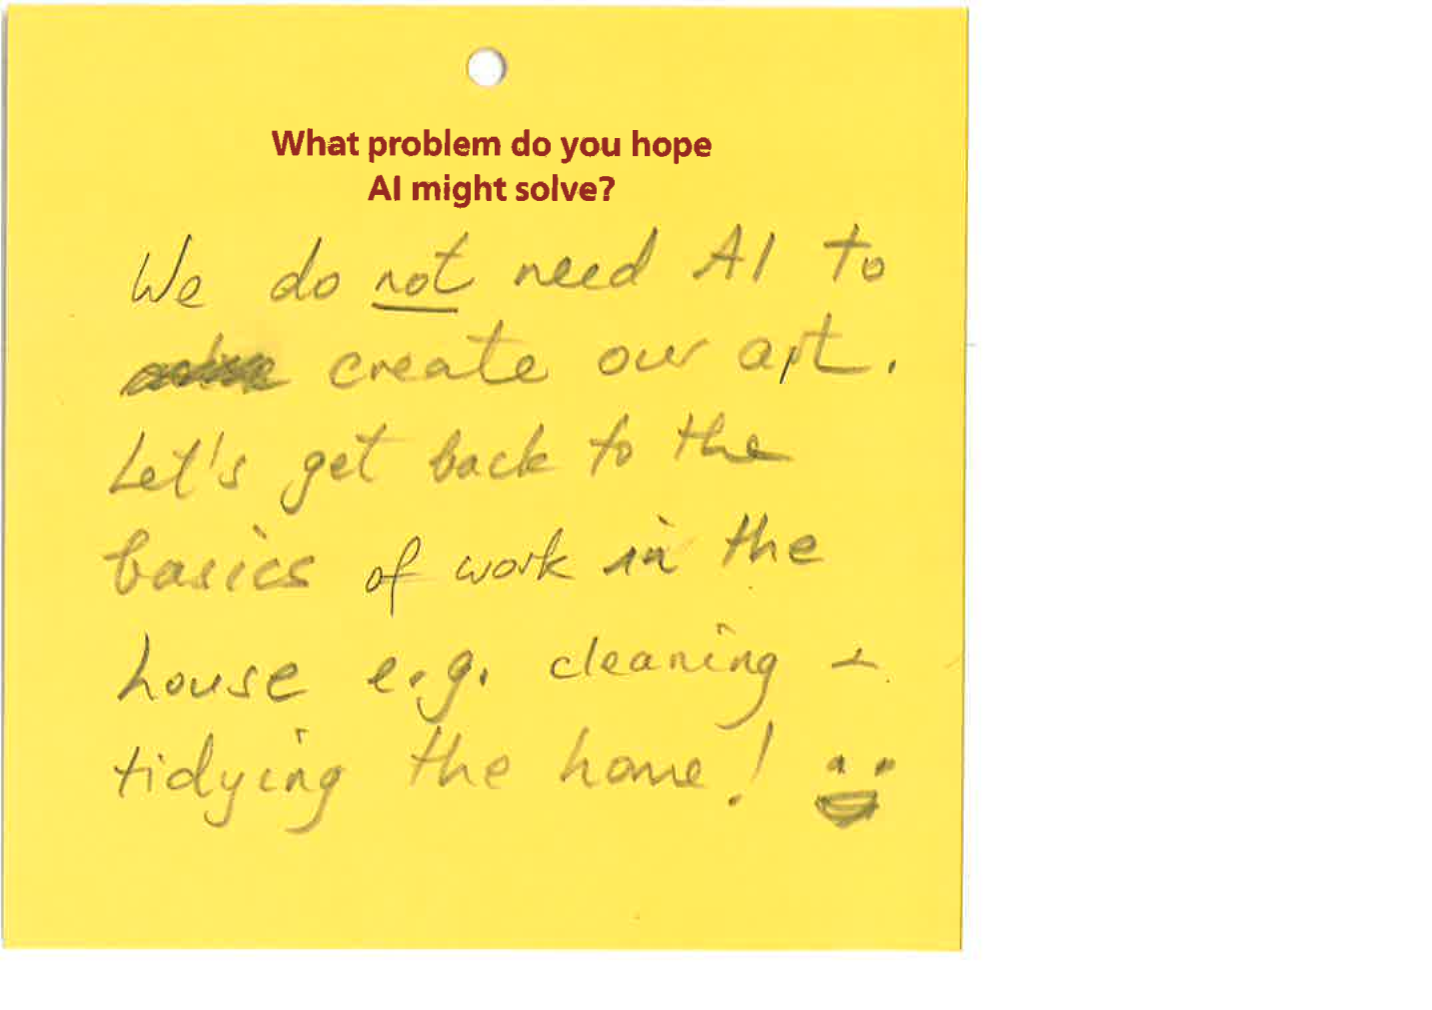 What problem do you hope
AI might solve?
We do not need AI to
create our art.
Let's get back to the
basics of work in the
house e.g. cleaning +
tidying the home!